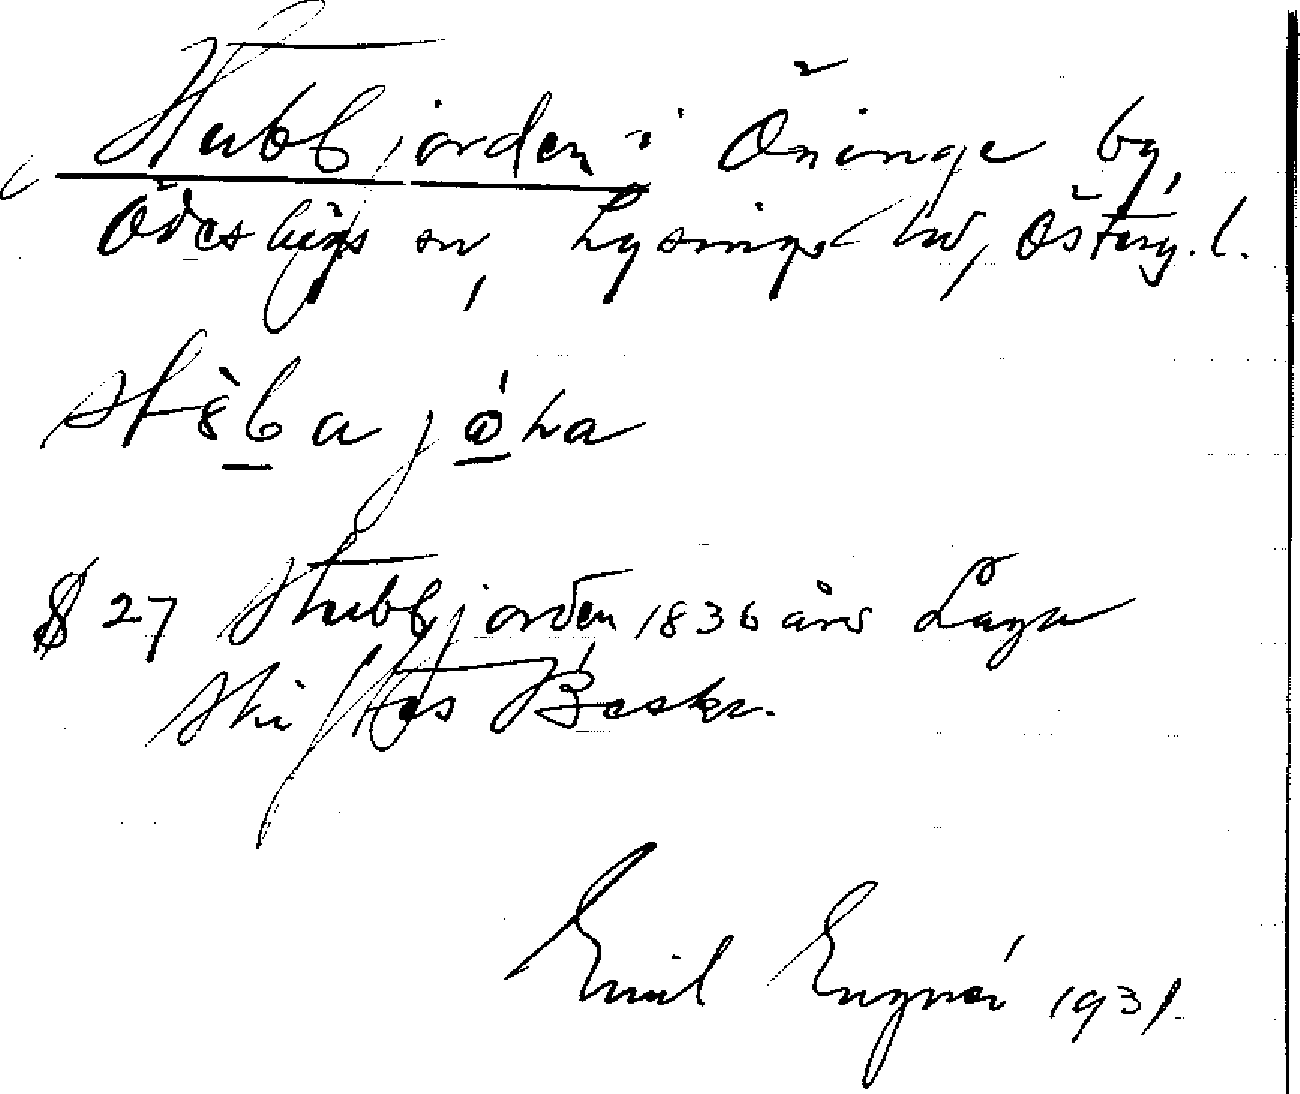 Stubbjorden i Öninge by,
Ödeshögs sn, Lysings hd, Österg. l.
st8̀ba jó̲ɳa
§ 27 Stubbjorden 1836 års Laga
Skiftes Beskr.
Emil Engnér 1931.